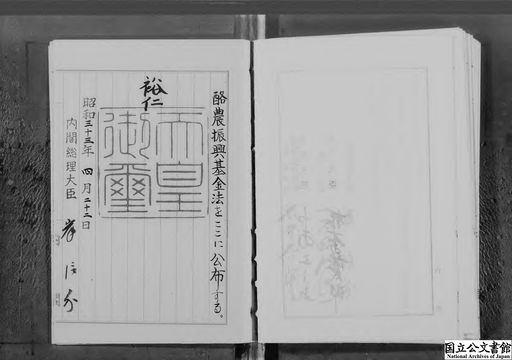 酪農振興基金法をここに公布する。
裕仁
天皇御璽
昭和三十三年四月二十二日
内閣総理大臣 岸信介
国立公文書館
National Archives of Japan